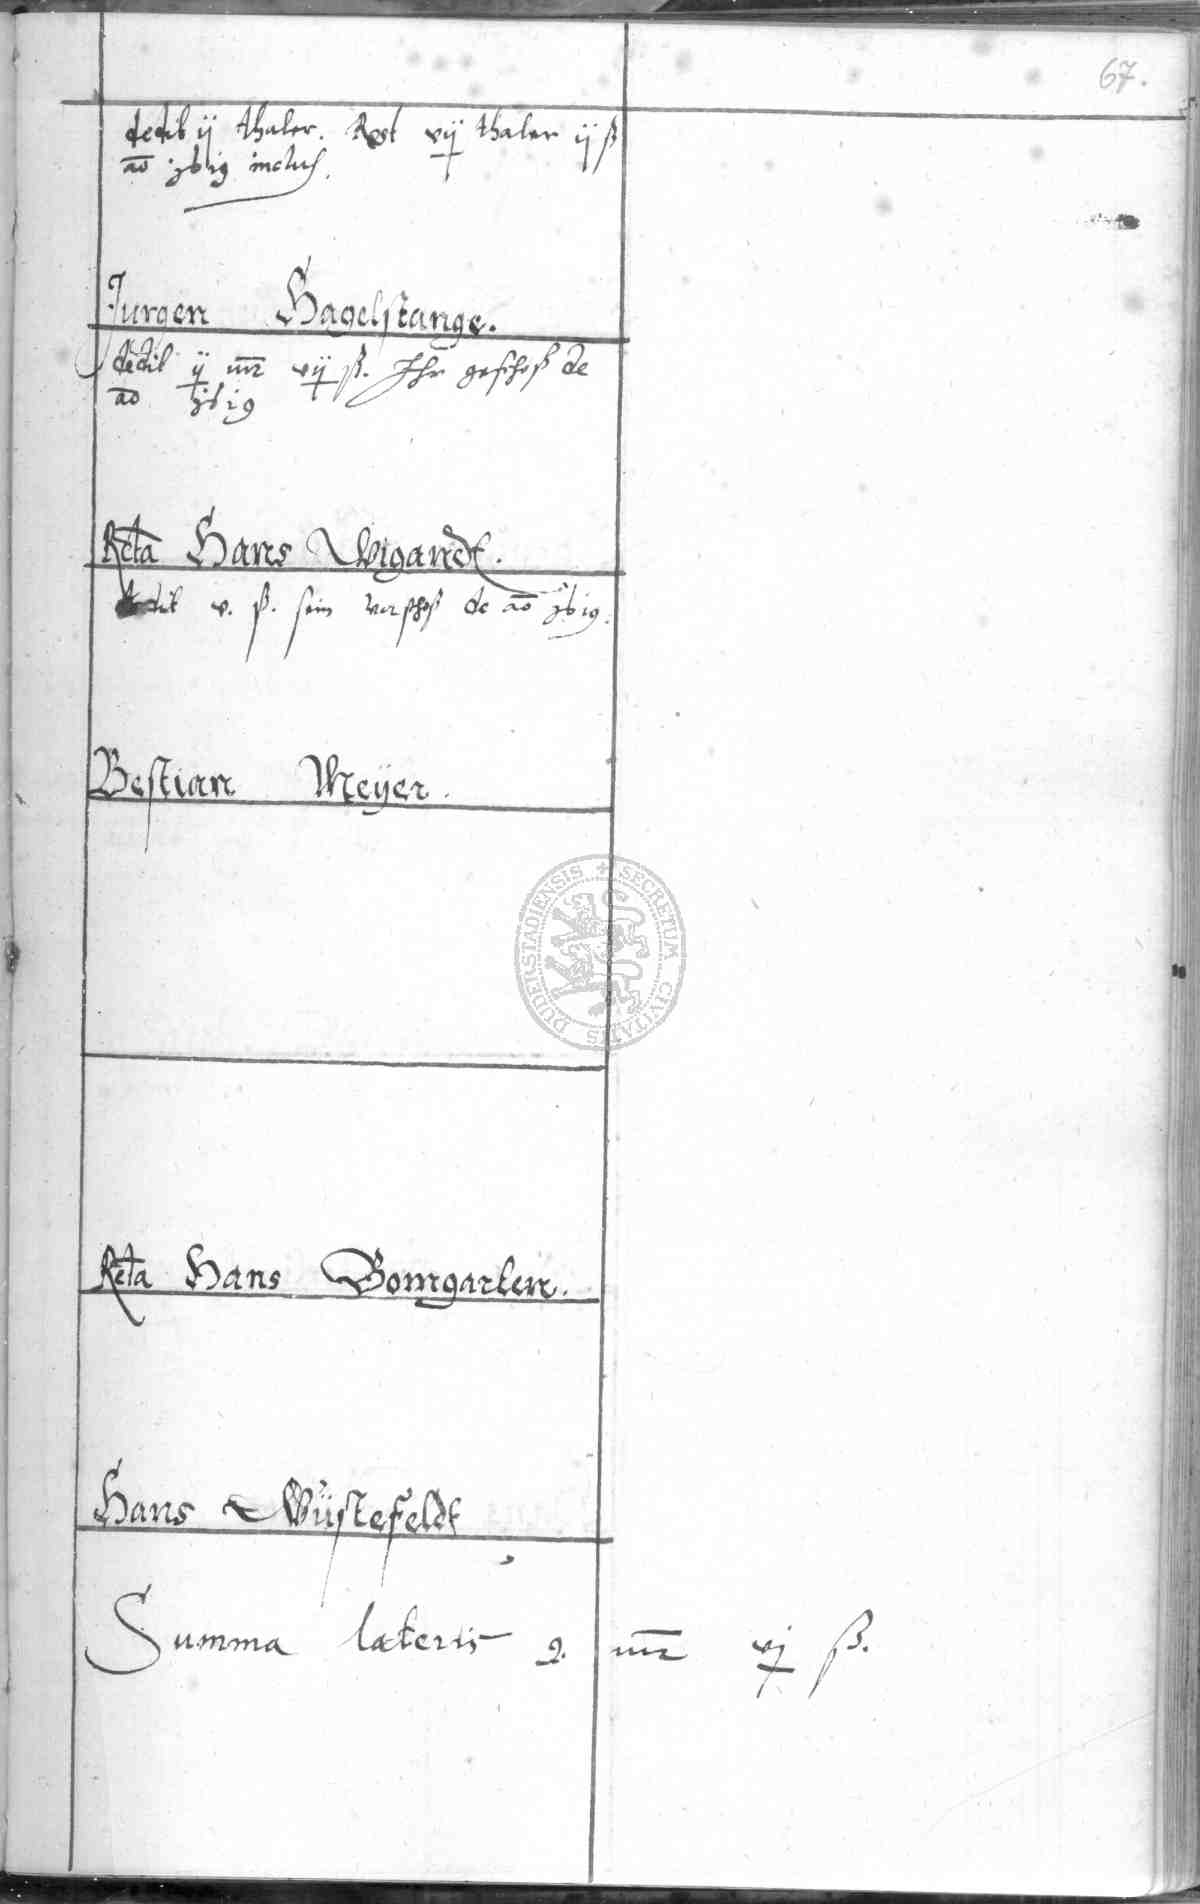 67.
dedit ij thaler. Rest vij thaler ij ß
ao inclus.
Jurgen Hagelstange.
dedit ij mr vij ß. Ihr geschoß de
ao
Rcta Hans Wigandt.
dedit v. ß. sein vorschoß de ao
Bestian Meÿer.
DUDERSTADIENSIS + SECRETUM CIVITATIS
Rcta Hans Bomgarten.
Hans Wüstefeldt
Summa lateris 2. mr vj ß.